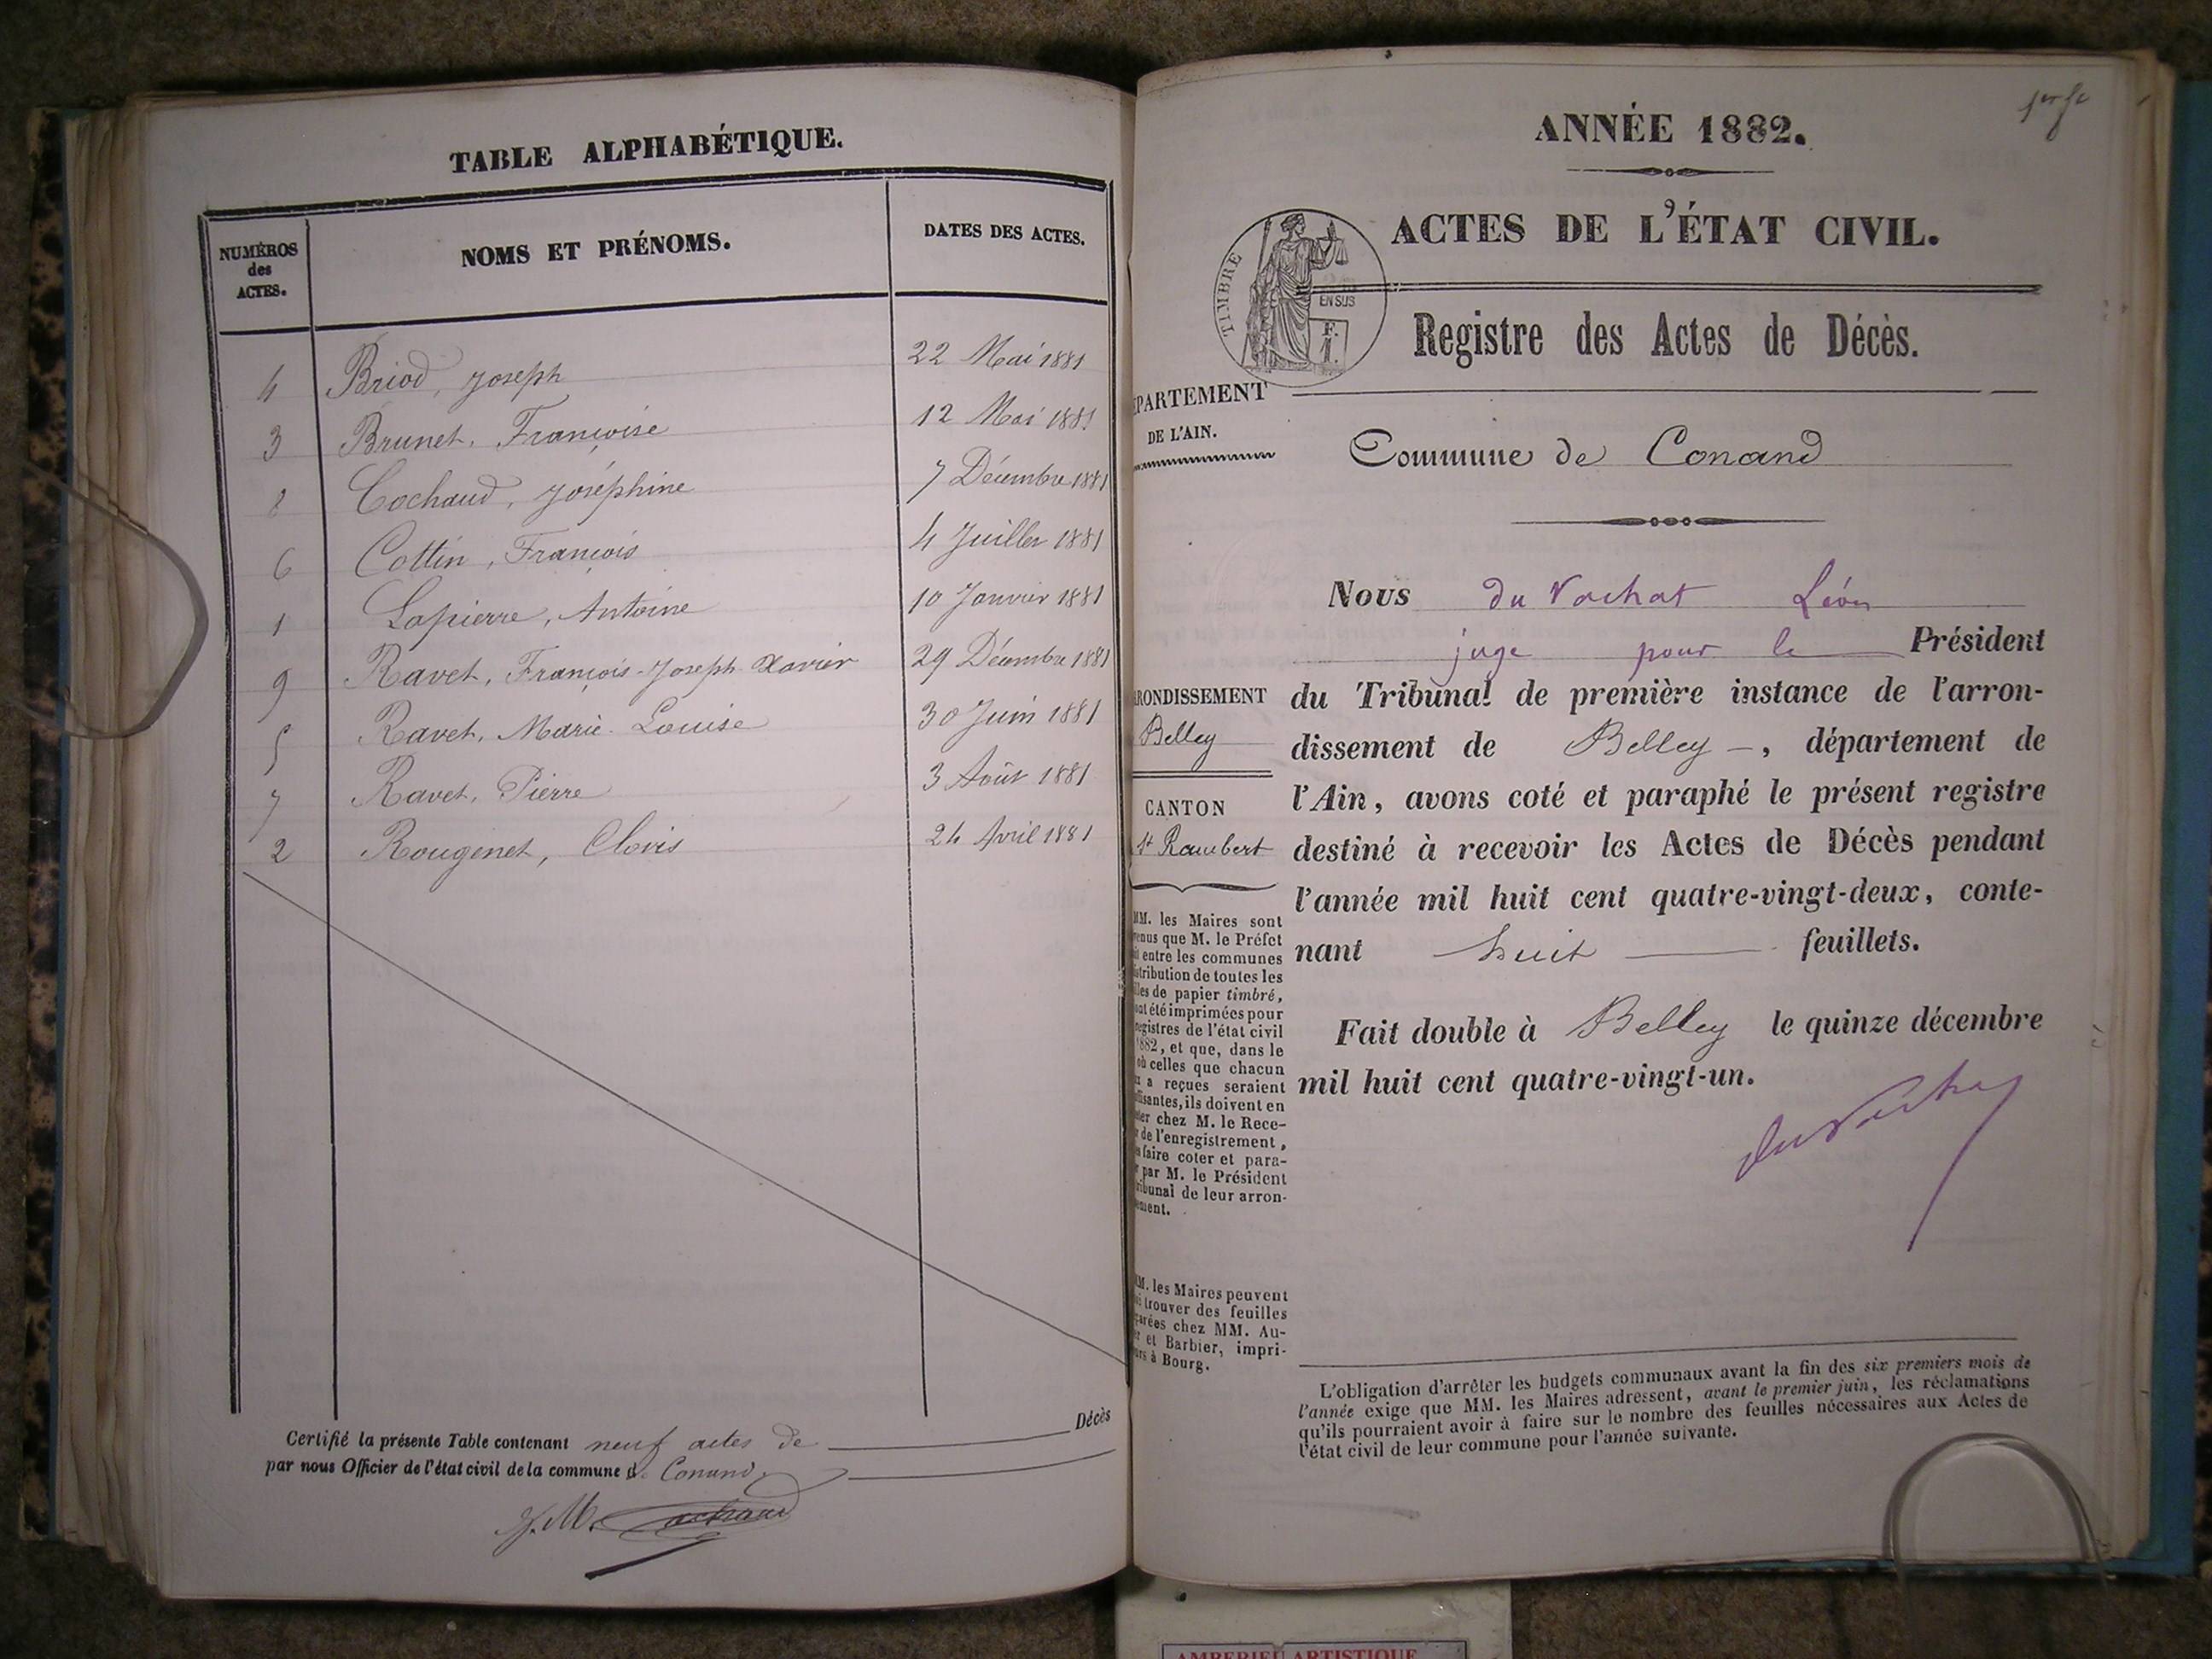 TABLE ALPHABÉTIQUE.
NUMÉROS des ACTES. NOMS ET PRÉNOMS. DATES DES ACTES.
4 Briod, Joseph 22 Mai 1881
3 Brunet, Françoise 12 Mai 1881
8 Cochaud, Joséphine 7 Décembre 1881
6 Cottin, François 4 Juillet 1881
1 Lapierre, Antoine 10 Janvier 1881
9 Ravet, François-Joseph-Xavier 29 Décembre 1881
5 Ravet, Marie-Louise 30 Juin 1881
7 Ravet, Pierre 3 Août 1881
2 Rougenet, Clovis 24 Avril 1881
Certifié la présente Table contenant neuf actes de Décès
par nous Officier de l'état civil de la commune d. Conand.
J. M. Cochaud
1er f.
ANNÉE 1882.
ACTES DE L'ÉTAT CIVIL.
TIMBRE
EN SUS
F.
1.
Registre des Actes de Décès.
PARTEMENT
DE L'AIN.
Commune de Conand
Nous du Vachat Léon
juge pour le Président
du Tribunal de première instance de l'arron-
dissement de Belley —, département de
l'Ain, avons coté et paraphé le présent registre
destiné à recevoir les Actes de Décès pendant
l'année mil huit cent quatre-vingt-deux, conte-
nant huit feuillets.
Fait double à Belley le quinze décembre
mil huit cent quatre-vingt-un.
du Vachat
RONDISSEMENT
Belley
CANTON
St Rambert
MM. les Maires sont
enus que M. le Préfet
it entre les communes
stribution de toutes les
lles de papier timbré,
ont été imprimées pour
registres de l'état civil
1882, et que, dans le
où celles que chacun
a reçues seraient
ffisantes, ils doivent en
ter chez M. le Rece-
r de l'enregistrement,
s faire coter et para-
r par M. le Président
ribunal de leur arron-
ement.
MM. les Maires peuvent
si trouver des feuilles
parées chez MM. Au-
r et Barbier, impri-
urs à Bourg.
L'obligation d'arrêter les budgets communaux avant la fin des six premiers mois de
l'année exige que MM. les Maires adressent, avant le premier juin, les réclamations
qu'ils pourraient avoir à faire sur le nombre des feuilles nécessaires aux Actes de
l'état civil de leur commune pour l'année suivante.
AMBERIEU ARTISTIQUE